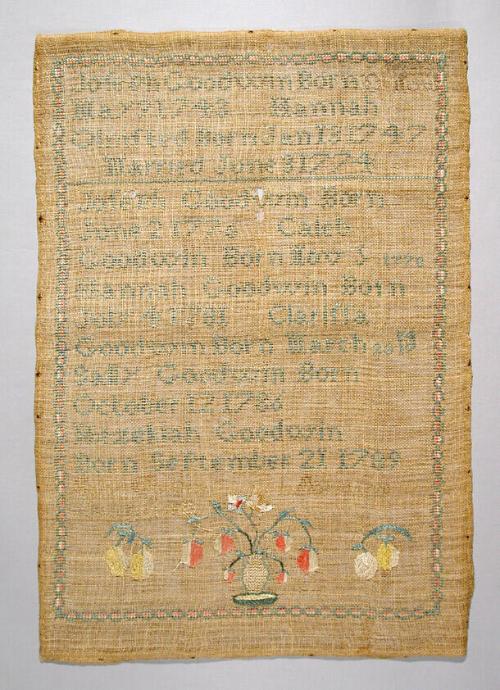 Goodwin Born
May 1748 Hannah
Born Jan 13 1747
Married June 9 1774
Goodwin Born
June 2 177 Caleb
Goodwin Born Nov 5 1778
Hannah Goodwin Born
July 4 1781 Clarissa
Goodwin Born March
Sally Goodwin Born
October 12 1786
Hezekiah Goodwin
Born September 21 1789